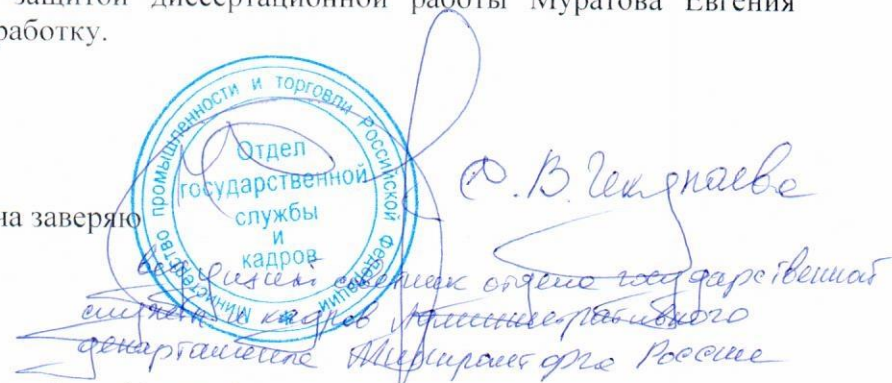 защитой диссертационной работы Муратова Евгения
работку.
Министерство промышленности и торговли Российской Федерации
Отдел
государственной
службы
и
кадров
на заверяю
отдела государственной
службы и кадров Административного
департамента Минпромторга России